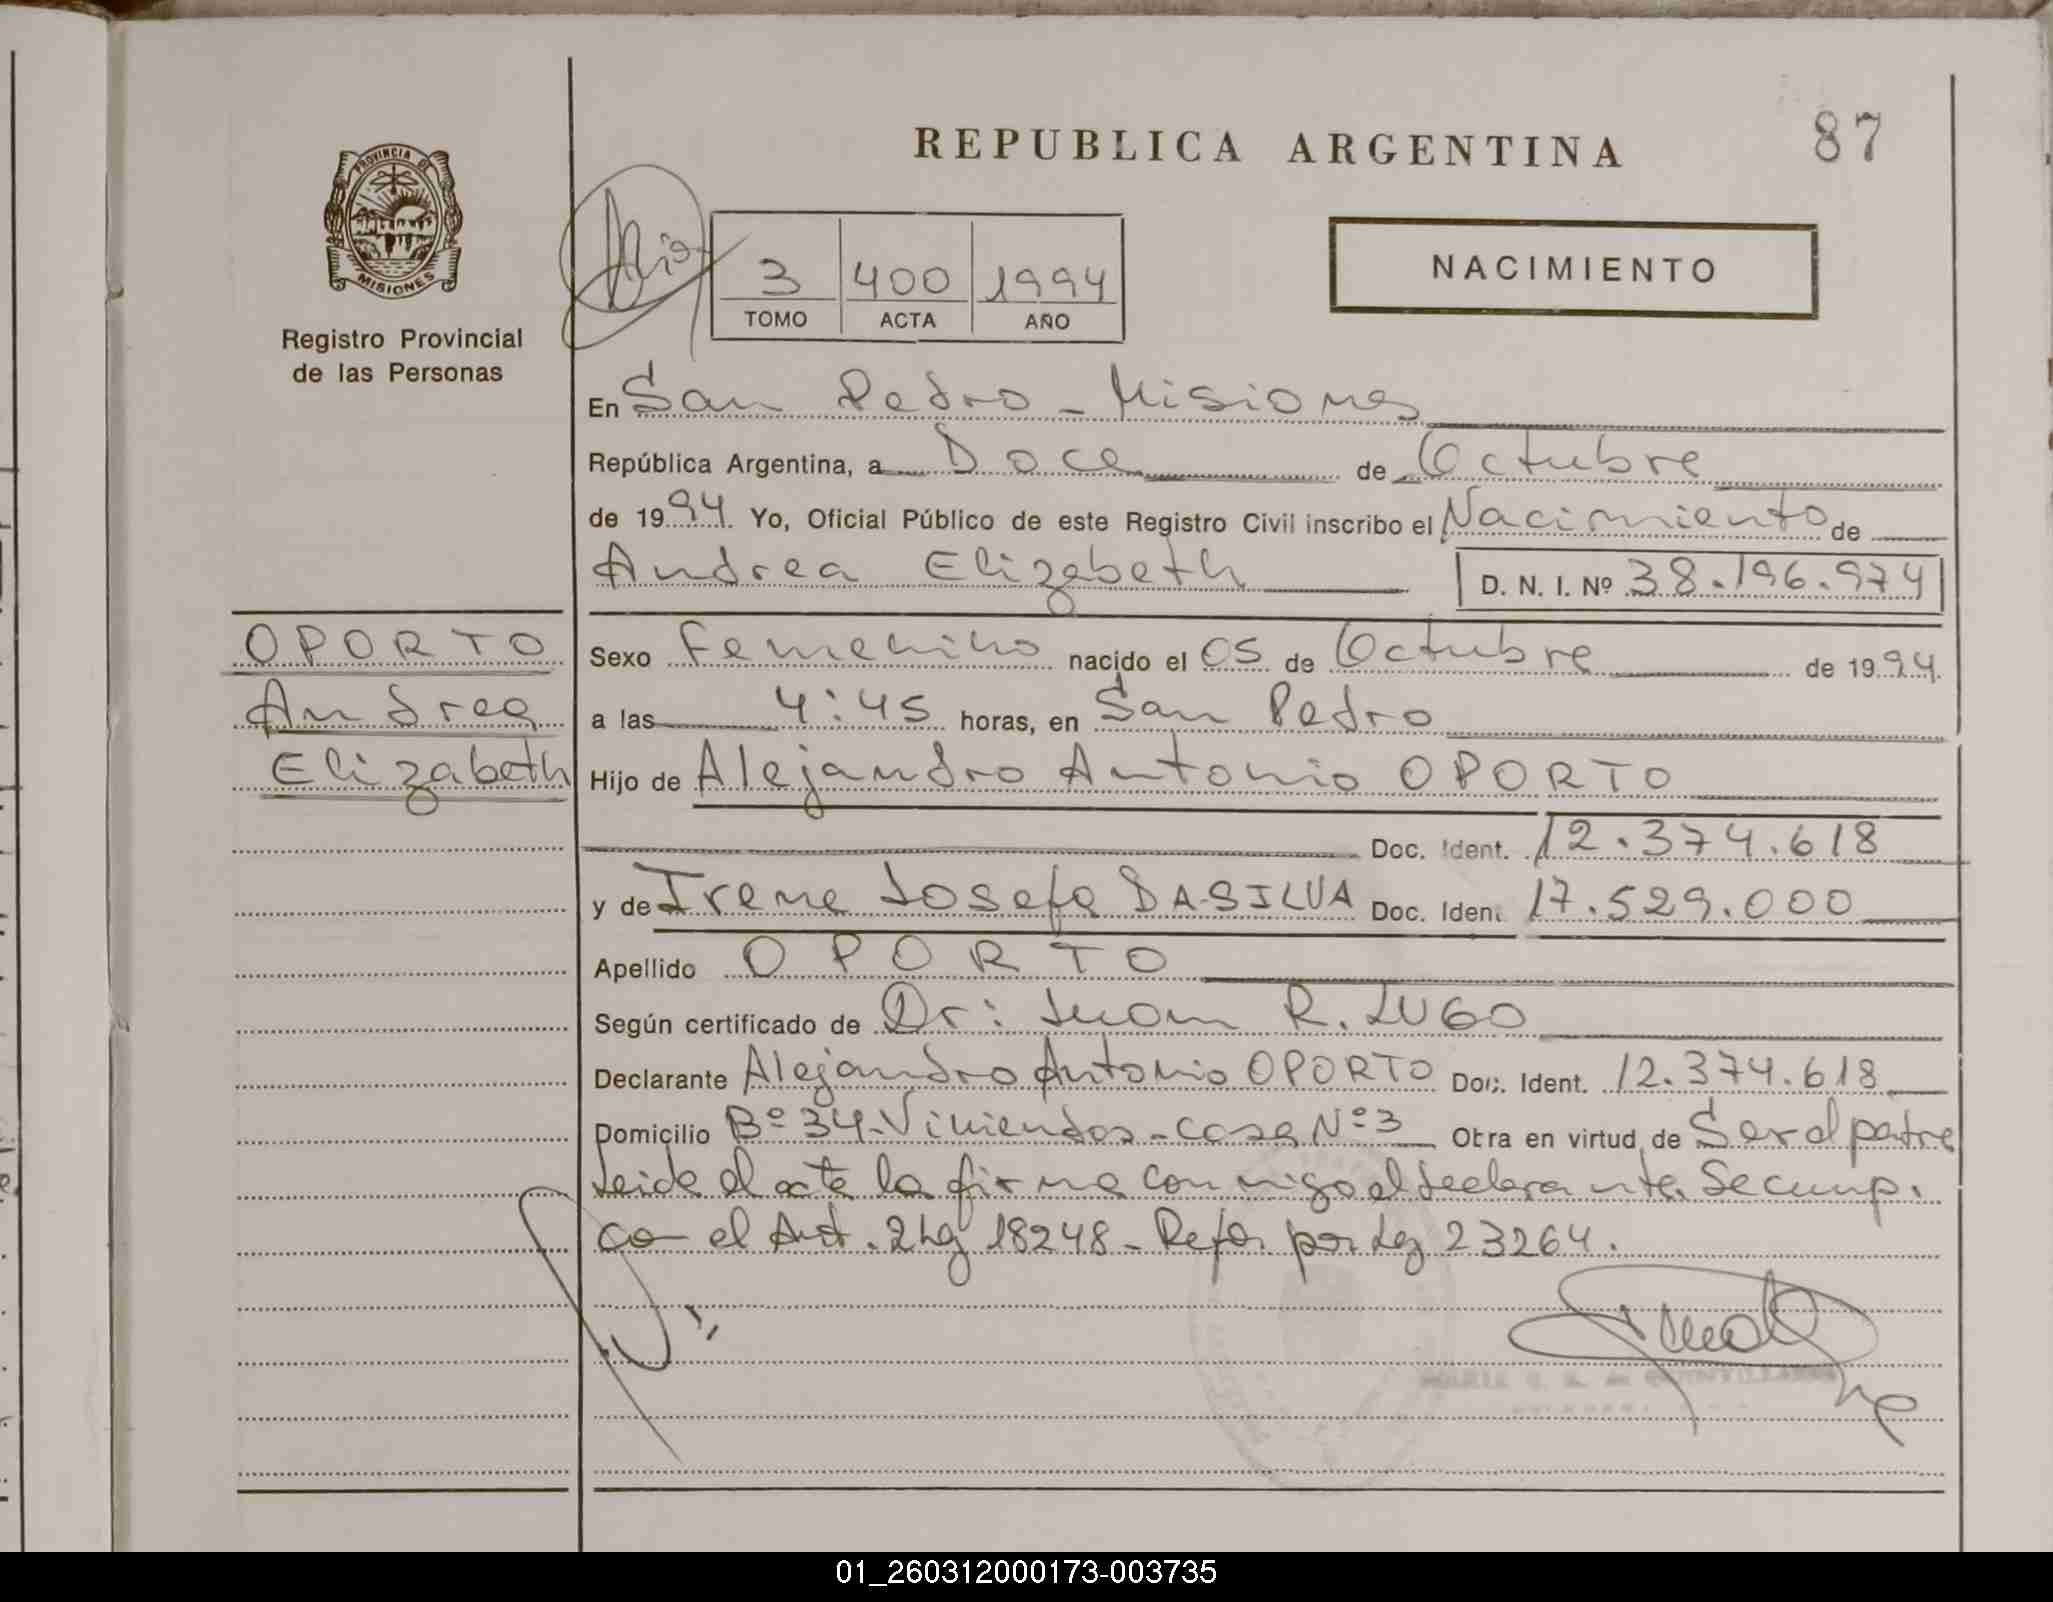 REPUBLICA ARGENTINA
87
PROVINCIA DE
MISIONES
Registro Provincial
de las Personas
3 400 1994
TOMO ACTA AÑO
NACIMIENTO
En San Pedro - Misiones
República Argentina, a Doce de Octubre
de 1994. Yo, Oficial Público de este Registro Civil inscribo el Nacimiento de
Andrea Elizabeth D. N. I. Nº 38.196.974
OPORTO
Andrea
Elizabeth
Sexo Femenino nacido el 05 de Octubre de 1994.
a las 4:45 horas, en San Pedro
Hijo de Alejandro Antonio OPORTO
Doc. Ident. 12.374.618
y de Irene Josefa DA-SILVA Doc. Iden. 17.529.000
Apellido OPORTO
Según certificado de Dr: Juan R. LUGO
Declarante Alejandro Antonio OPORTO Doc. Ident. 12.374.618
Domicilio Bº 34-Viviendas-casa Nº 3 Obra en virtud de Ser el padre
Leida el acta la firma conmigo el declarante. Se cump.
co el Art. 2 Ley 18248 - Refor. por Ley 23264.
01_260312000173-003735